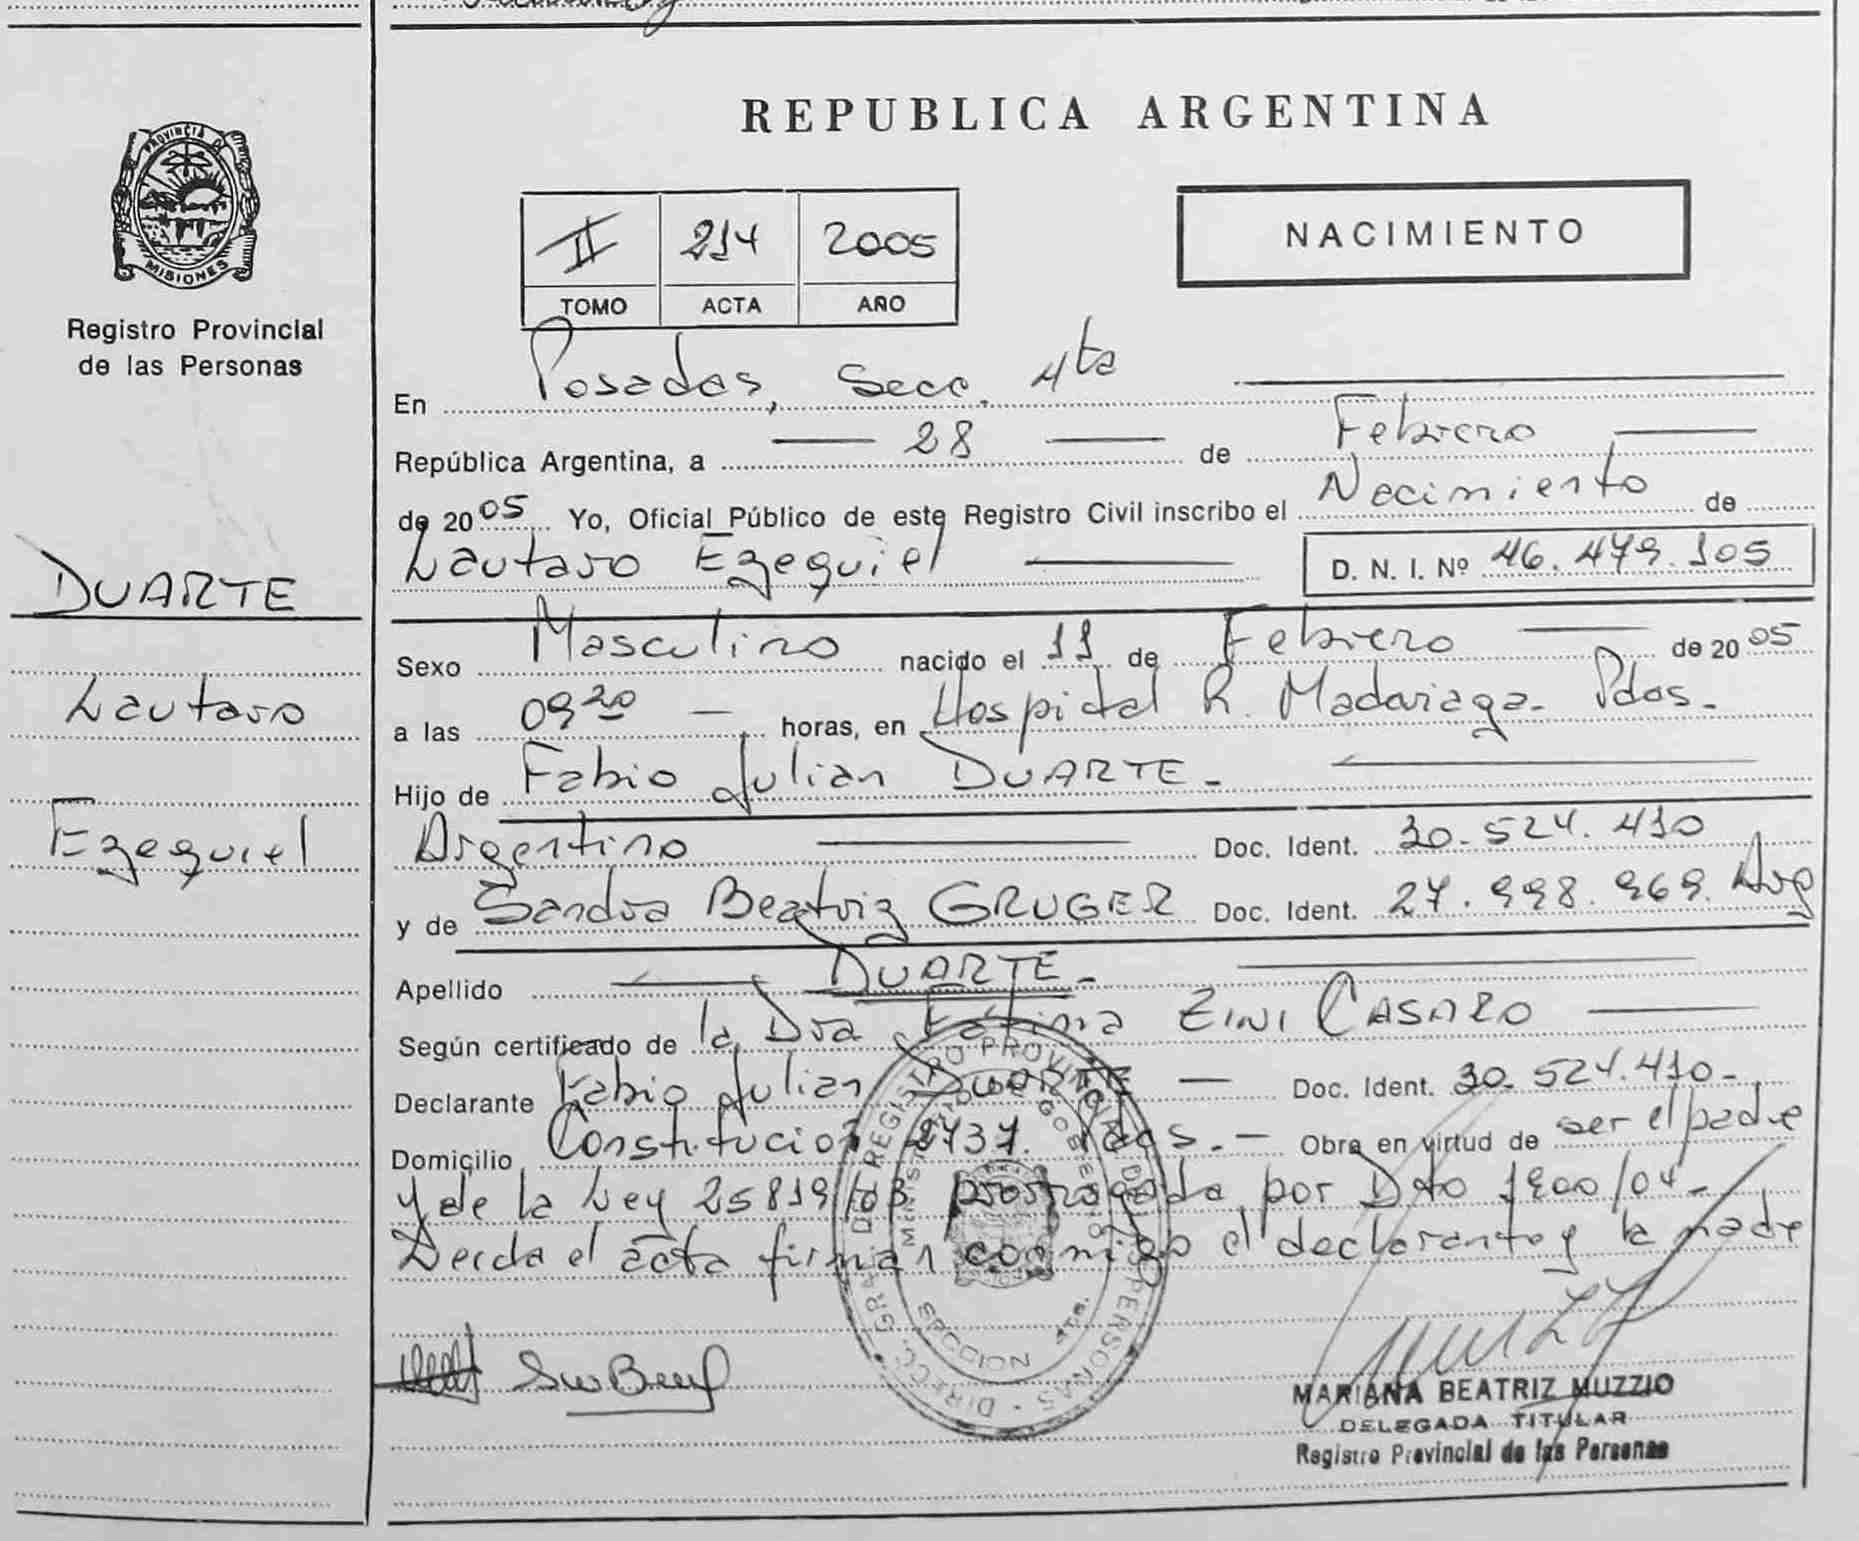 REPUBLICA ARGENTINA
PROVINCIA D
MISIONES
Registro Provincial
de las Personas
II 214 2005
TOMO ACTA AÑO
NACIMIENTO
En Posadas, Secc. 4ta
República Argentina, a 28 de Febrero
de 2005 Yo, Oficial Público de este Registro Civil inscribo el Nacimiento de
Lautaro Ezequiel D. N. I. Nº 46.479.105
DUARTE
Lautaro
Ezequiel
Sexo Masculino nacido el 11 de Febrero de 2005
a las 09 20 horas, en Hospital R. Madariaga - Pdas.-
Hijo de Fabio Julian DUARTE.-
Argentino Doc. Ident. 30.524.410
y de Sandra Beatriz GRUGER Doc. Ident. 27.998.969. Arg
Apellido DUARTE.-
Según certificado de la Dra Fátima ZINI CASARO
Declarante Fabio Julian DUARTE Doc. Ident. 30.524.410-
Domicilio Constitución 2737. Pdas.- Obra en virtud de ser el padre
y de la Ley 25819/03 prorrogada por Dto 1900/04-
Leida el acta firman conmigo el declarante y la madre
DIRECC. GRAL DEL REGISTRO PROVINCIAL DE LAS PERSONAS
MINISTERIO DE GOBIERNO
MARIANA BEATRIZ MUZZIO
DELEGADA TITULAR
Registro Provincial de las Personas